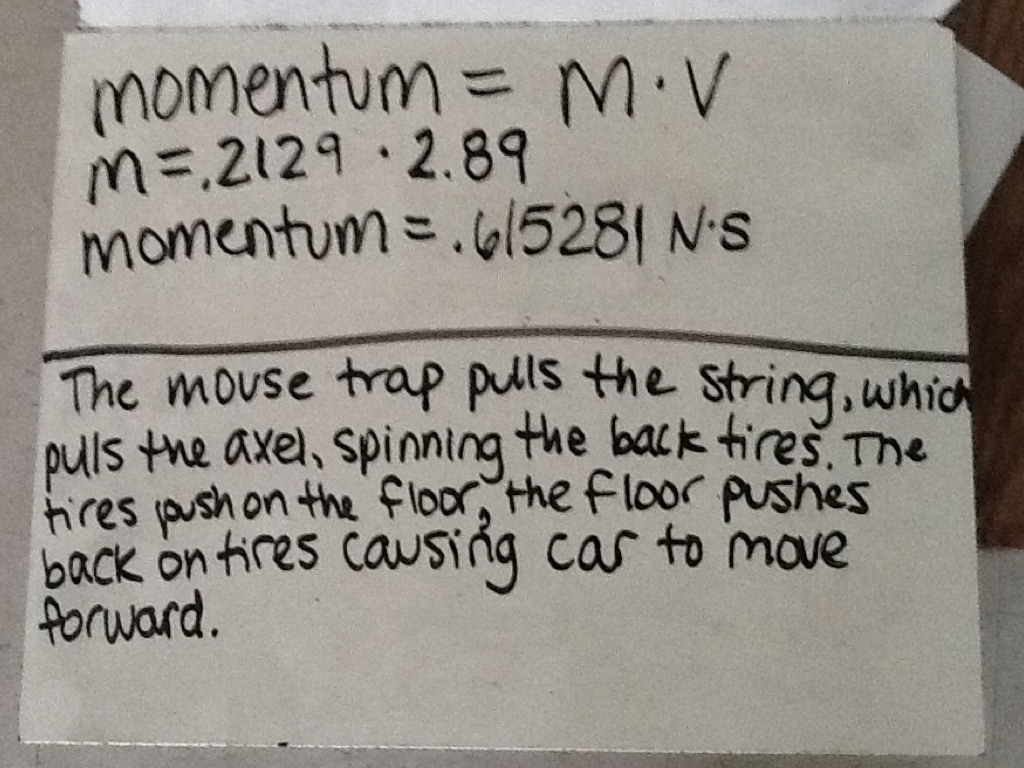 momentum = M · V
m = .2129 · 2.89
momentum = .615281 N·s
The mouse trap pulls the string, which
pulls the axel, spinning the back tires. The
tires push on the floor, the floor pushes
back on tires causing car to move
forward.